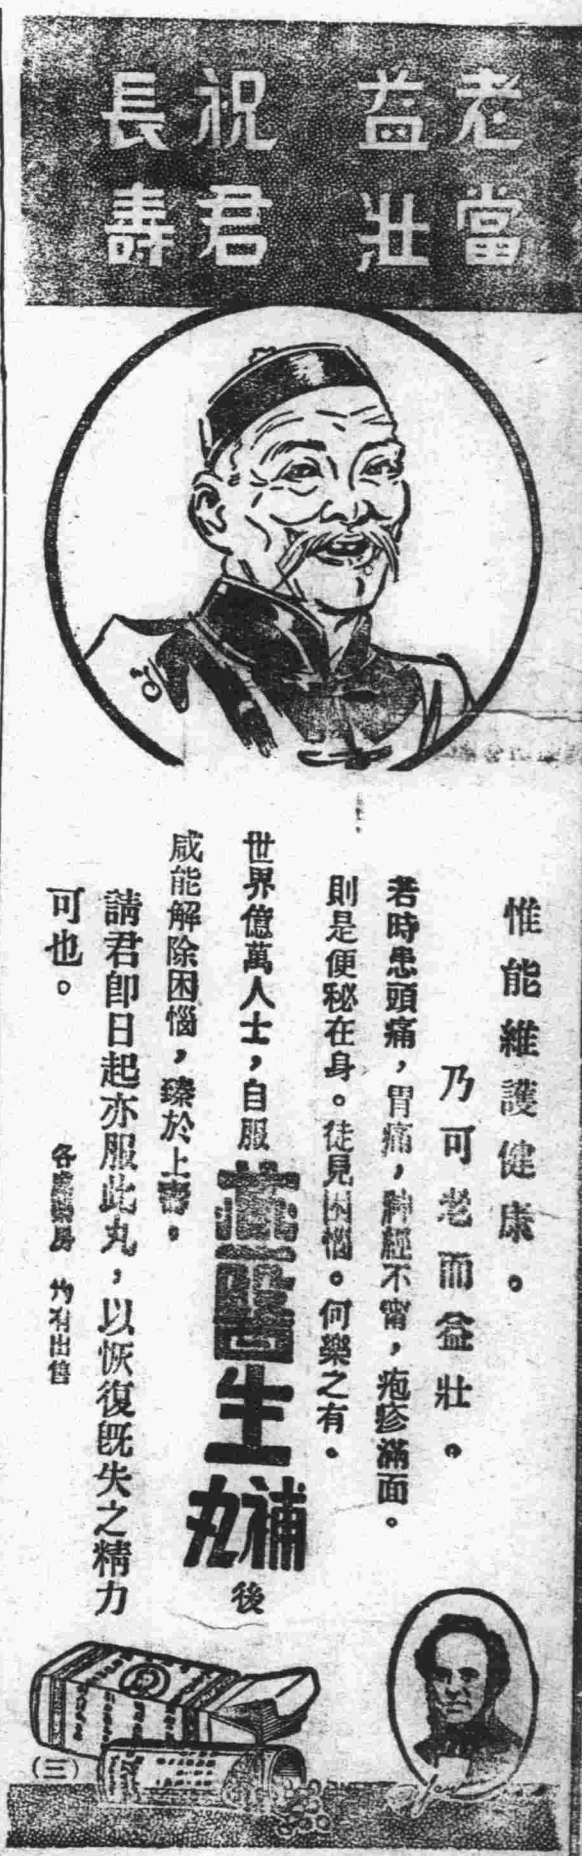 老當益壯
祝君長壽
惟能維護健康。
乃可老而益壯。
若時患頭痛，胃痛，神經不甯，疱疹滿面。
則是便秘在身。徒見困惱。何樂之有。
世界億萬人士，自服
醫生
補丸
後
咸能解除困惱，臻於上壽。
請君卽日起亦服此丸，以恢復旣失之精力
可也。
各藥房 均有出售
(三)